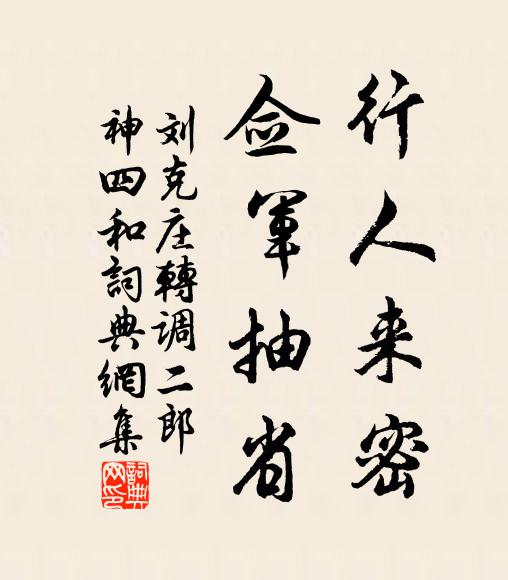 行人来密
佥軍抽省
刘克庄轉调二郎
神四和詞典網集
詞典网印